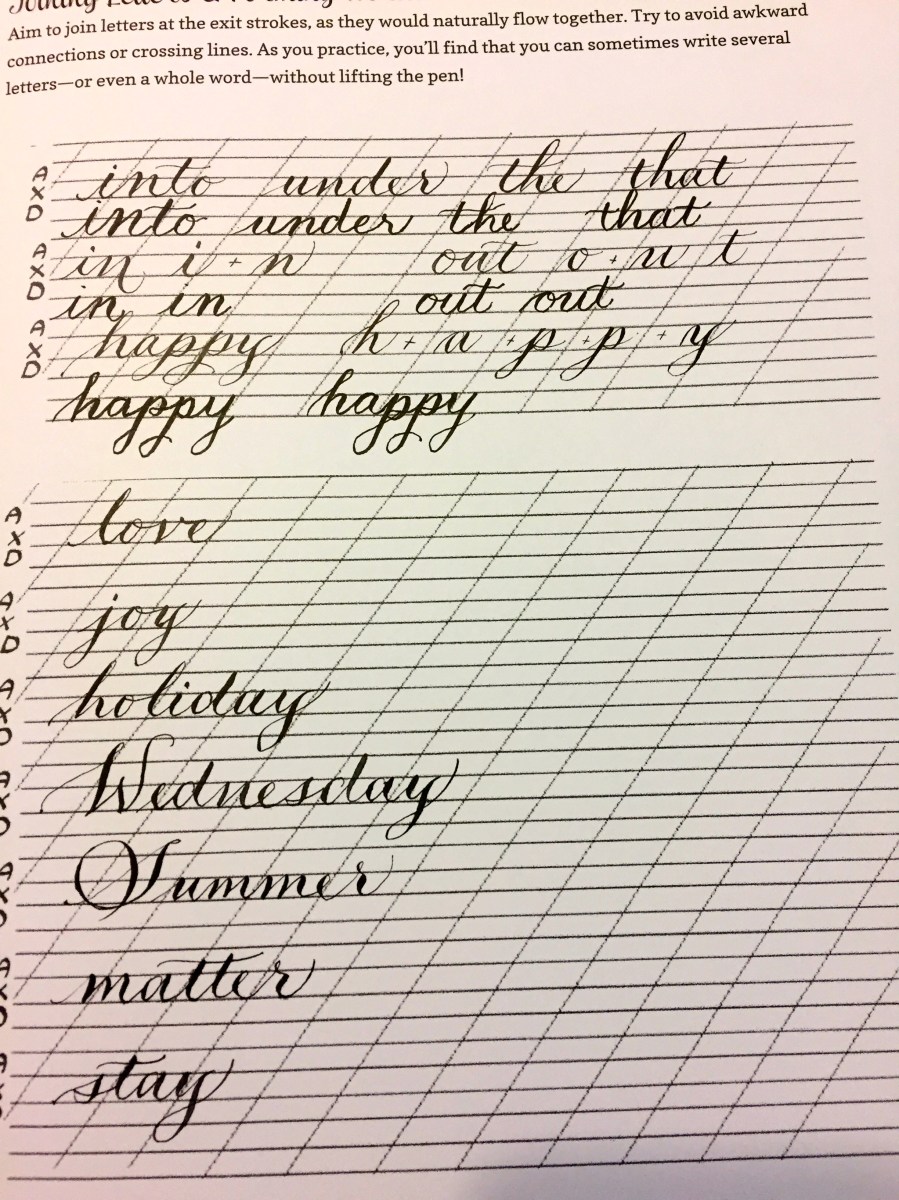 Joining Letters &
Aim to join letters at the exit strokes, as they would naturally flow together. Try to avoid awkward
connections or crossing lines. As you practice, you’ll find that you can sometimes write several
letters—or even a whole word—without lifting the pen!
A into under the that
X
D into under the that
A in i + n out o + u t
X
D in in out out
A happy h + a + p + p + y
X
D
happy happy
A love
X
D
A joy
X
D
A holiday
X
D
A Wednesday
X
D
A Summer
X
D
A matter
X
D
A stay
X